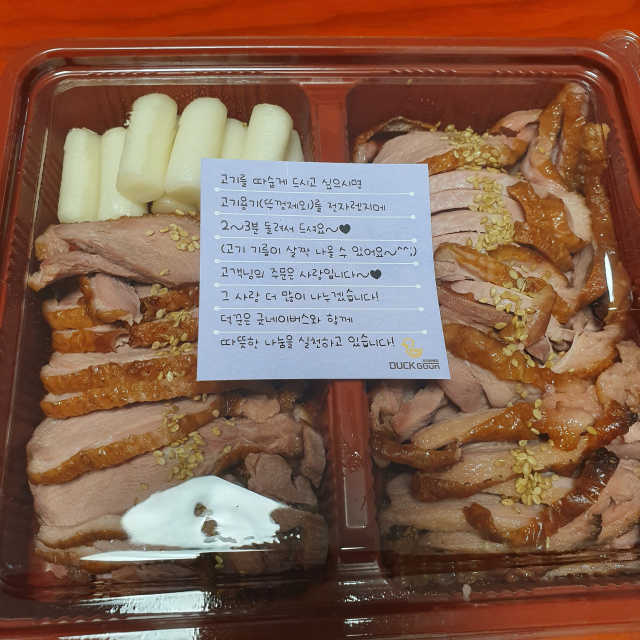 고기를 따습게 드시고 싶으시면
고기용기(뚜껑제외)를 전자렌지에
2~3분 돌려서 드셔요~♥
(고기 기름이 살짝 나올 수 있어요~^^;)
고객님의 주문은 사랑입니다~♥
그 사랑 더 많이 나누겠습니다!
덕쿱은 굿네이버스와 함께
따뜻한 나눔을 실천하고 있습니다!
DUCK GOOR